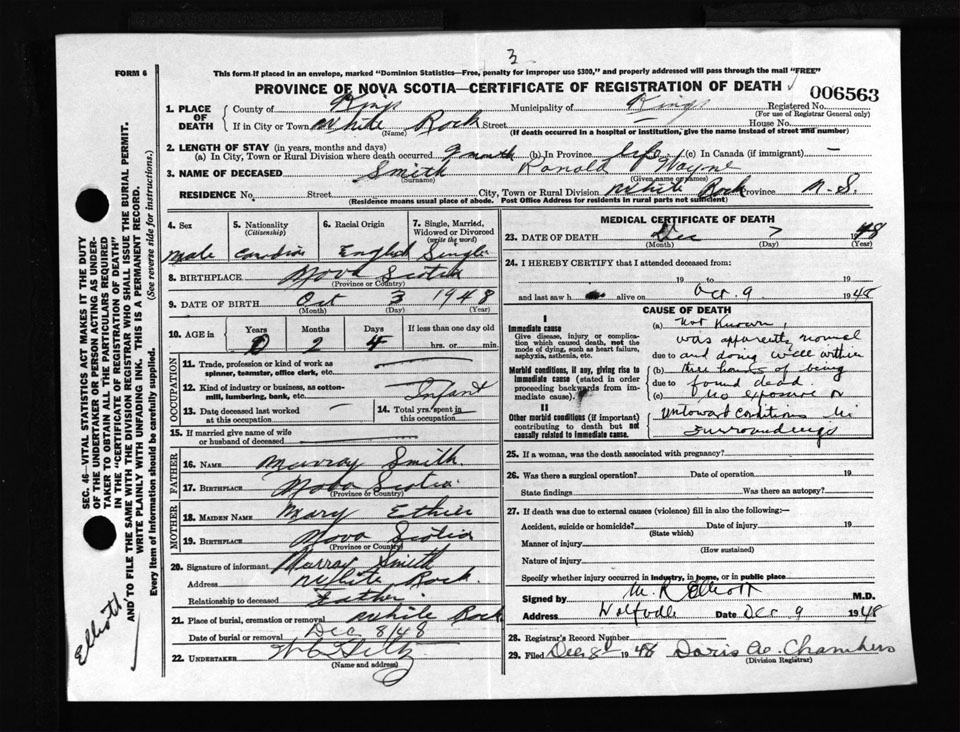 3
FORM 6
This form if placed in an envelope, marked "Dominion Statistics—Free, penalty for improper use $300," and properly addressed will pass through the mail "FREE"
PROVINCE OF NOVA SCOTIA—CERTIFICATE OF REGISTRATION OF DEATH
006563
1. PLACE OF DEATH
County of Kings Municipality of Kings Registered No.
(For use of Registrar General only)
If in City or Town White Rock Street House No.
(Name) (If death occurred in a hospital or institution, give the name instead of street and number)
2. LENGTH OF STAY (in years, months and days)
(a) In City, Town or Rural Division where death occurred (b) In Province life (c) In Canada (if immigrant) —
3. NAME OF DECEASED Smith Ronald Wayne
(Surname) (Given name or names)
RESIDENCE No. Street City, Town or Rural Division White Rock Province N.S.
(Residence means usual place of abode. Post Office Address for residents in rural parts not sufficient)
4. Sex 5. Nationality (Citizenship) 6. Racial Origin 7. Single, Married, Widowed or Divorced (write the word)
Male Canadian English Single
8. BIRTHPLACE Nova Scotia
(Province or Country)
9. DATE OF BIRTH Oct 3 1948
(Month) (Day) (Year)
10. AGE in Years Months Days If less than one day old
0 2 4 hrs. or min.
OCCUPATION
11. Trade, profession or kind of work as spinner, teamster, office clerk, etc.
12. Kind of industry or business, as cotton-mill, lumbering, bank, etc. Infant
13. Date deceased last worked at this occupation — 14. Total yrs. spent in this occupation
15. If married give name of wife or husband of deceased
FATHER
16. NAME Murray Smith
17. BIRTHPLACE Nova Scotia
(Province or Country)
MOTHER
18. MAIDEN NAME Mary
19. BIRTHPLACE Nova Scotia
(Province or Country)
20. Signature of informant Murray Smith
Address White Rock
Relationship to deceased Father
21. Place of burial, cremation or removal White Rock
Date of burial or removal Dec 8/48
22. UNDERTAKER
(Name and address)
MEDICAL CERTIFICATE OF DEATH
23. DATE OF DEATH Dec 7 1948
(Month) (Day) (Year)
24. I HEREBY CERTIFY that I attended deceased from:
19 to 19
and last saw h alive on 9 1948
CAUSE OF DEATH
I
Immediate cause
Give disease, injury or complication which caused death, not the mode of dying, such as heart failure, asphyxia, asthenia, etc.
Morbid conditions, if any, giving rise to immediate cause (stated in order proceeding backwards from immediate cause).
II
Other morbid conditions (if important) contributing to death but not causally related to immediate cause.
(a) Not Known,
was apparently normal
due to and doing well within
(b) three hours of being
due to found dead.
(c) No exposure or
untoward conditions in
surroundings
25. If a woman, was the death associated with pregnancy?
26. Was there a surgical operation? Date of operation 19
State findings Was there an autopsy?
27. If death was due to external causes (violence) fill in also the following:—
Accident, suicide or homicide? Date of injury 19
(State which)
Manner of injury
(How sustained)
Nature of injury
Specify whether injury occurred in industry, in home, or in public place
Signed by M. R. Elliott M.D.
Address Wolfville Date Dec 9 1948
28. Registrar's Record Number
29. Filed Dec 8 1948 Doris A. Chambers
(Division Registrar)
SEC. 46—VITAL STATISTICS ACT MAKES IT THE DUTY
OF THE UNDERTAKER OR PERSON ACTING AS UNDER-
TAKER TO OBTAIN ALL THE PARTICULARS REQUIRED
IN THE "CERTIFICATE OF REGISTRATION OF DEATH"
AND TO FILE THE SAME WITH THE DIVISION REGISTRAR WHO SHALL ISSUE THE BURIAL PERMIT.
WRITE PLAINLY WITH UNFADING INK. THIS IS A PERMANENT RECORD.
Every item of information should be carefully supplied. (See reverse side for instructions.)
Elliott.